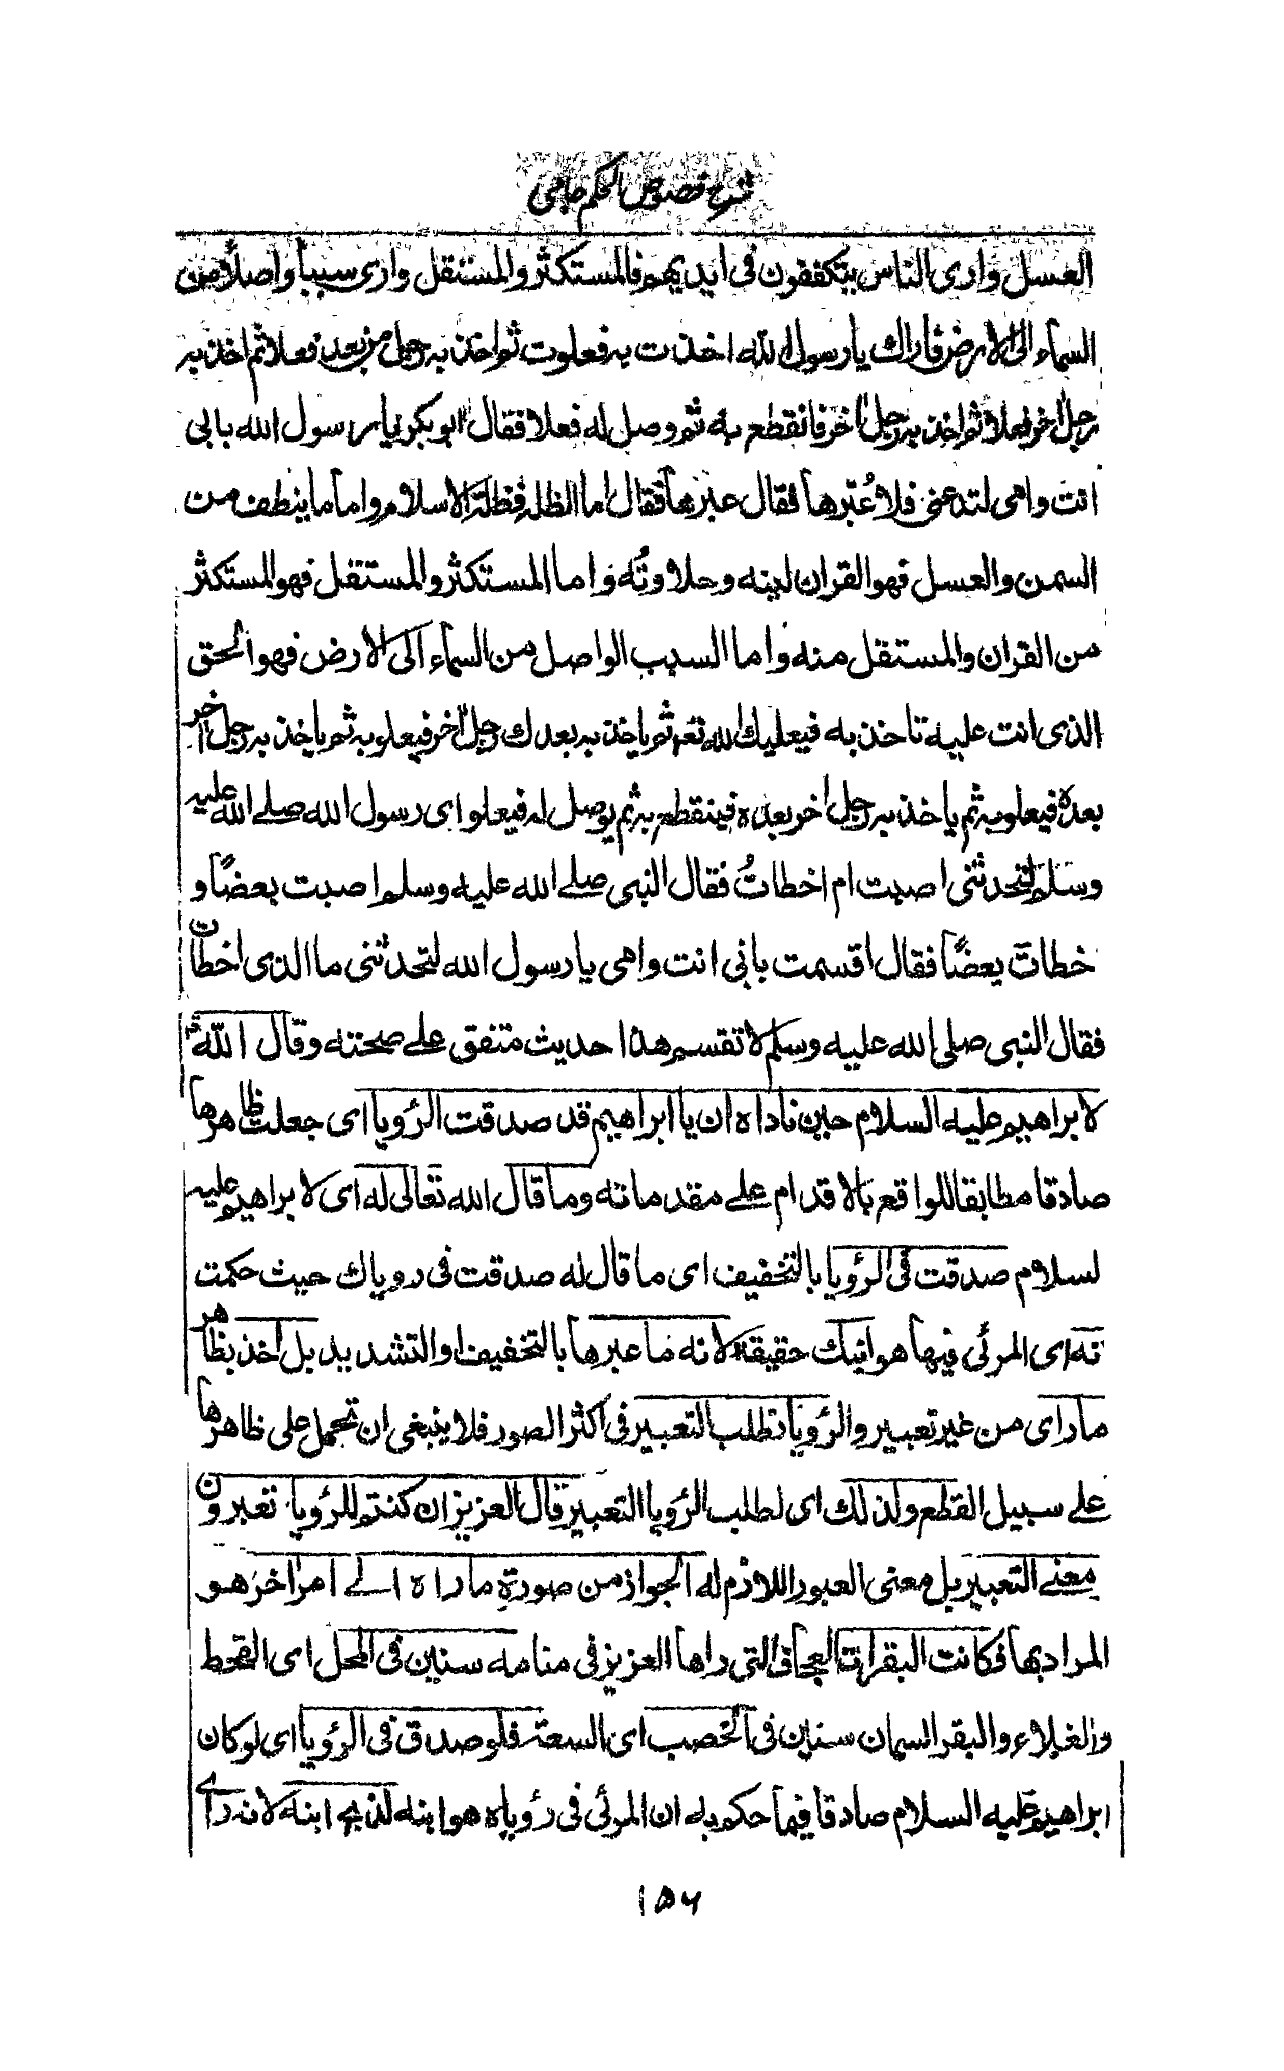 شرح فصوص الحكم جامی
العسل واری الناس یتکففون فی ایدیهم فالمستکثر والمستقل واری سبباً واصلاً من
السماء الی الارض فاراك یا رسول الله اخذت به فعلوت ثم اخذ به رجل من بعد فعلا ثم اخذ به
رجل اخر فعلا ثم اخذ به رجل اخر فانقطع به ثم وصل له فعلا فقال ابو بکر یا رسول الله بابی
انت وامی لتدعنی فلاعُبّرها فقال عبرها فقال اما الظلة فظلة الاسلام واما ما ینطف من
السمن والعسل فهو القران لینه وحلاوتُه واما المستکثر والمستقل فهو المستکثر
من القران والمستقل منه واما السبب الواصل من السماء الی الارض فهو الحق
الذی انت علیه تاخذ به فیعلیك الله ثم یاخذ به بعدك رجل اخر فیعلو به ثم یاخذ به رجل اخر
بعده فیعلو به ثم یاخذ به رجل اخر بعده فینقطع به ثم یوصل له فیعلو ای رسول الله صلے الله علیه
وسلم لتحدثنی اصبت ام اخطاتُ فقال النبی صلے الله علیه وسلم اصبت بعضًا و
خطات بعضًا فقال اقسمت بابی انت وامی یا رسول الله لتحدثنی ما الذی اخطات
فقال النبی صلی الله علیه وسلم لا تقسم هذا حدیث متفق علے صحته وقال الله
لابراهیم علیه السلام حین ناداه ان یا ابراهیم قد صدقت الرُویا ای جعلت ظاهرها
صادقا مطابقا للواقع بالاقدام علے مقدماته وما قال الله تعالی له ای لابراهیم علیه
لسلام صدقت فی الرُویا بالتخفیف ای ما قال له صدقت فی رویاك حیث حکمت
نه ای المرئی فیها هو ابنك حقیقة لانه ما عبرها بالتخفیف او التشدید بل اخذ بظاهر
ما رای من غیر تعبیر والرُویا تطلب التعبیر فی اکثر الصور فلا ینبغی ان تحمل علی ظاهرها
علے سبیل القطع ولذلك ای لطلب الرُویا التعبیر قال العزیز ان کنتم للرُویا تعبرون
معنے التعبیر بل معنی العبور اللازم له الجواز من صورة ما راه الے امر اخر هو
المراد بها فکانت البقرات العجاف التی راها العزیز فی منامه سنین فی المحل ای القحط
والغلاء والبقر السمان سنین فی الخصب ای السعة فلو صدق فی الرُویا ای لو کان
ابراهیم علیه السلام صادقا فیما حکم به ان المرئی فی رُویاه هو ابنه لذبح ابنه لانه رای
۱۵۶